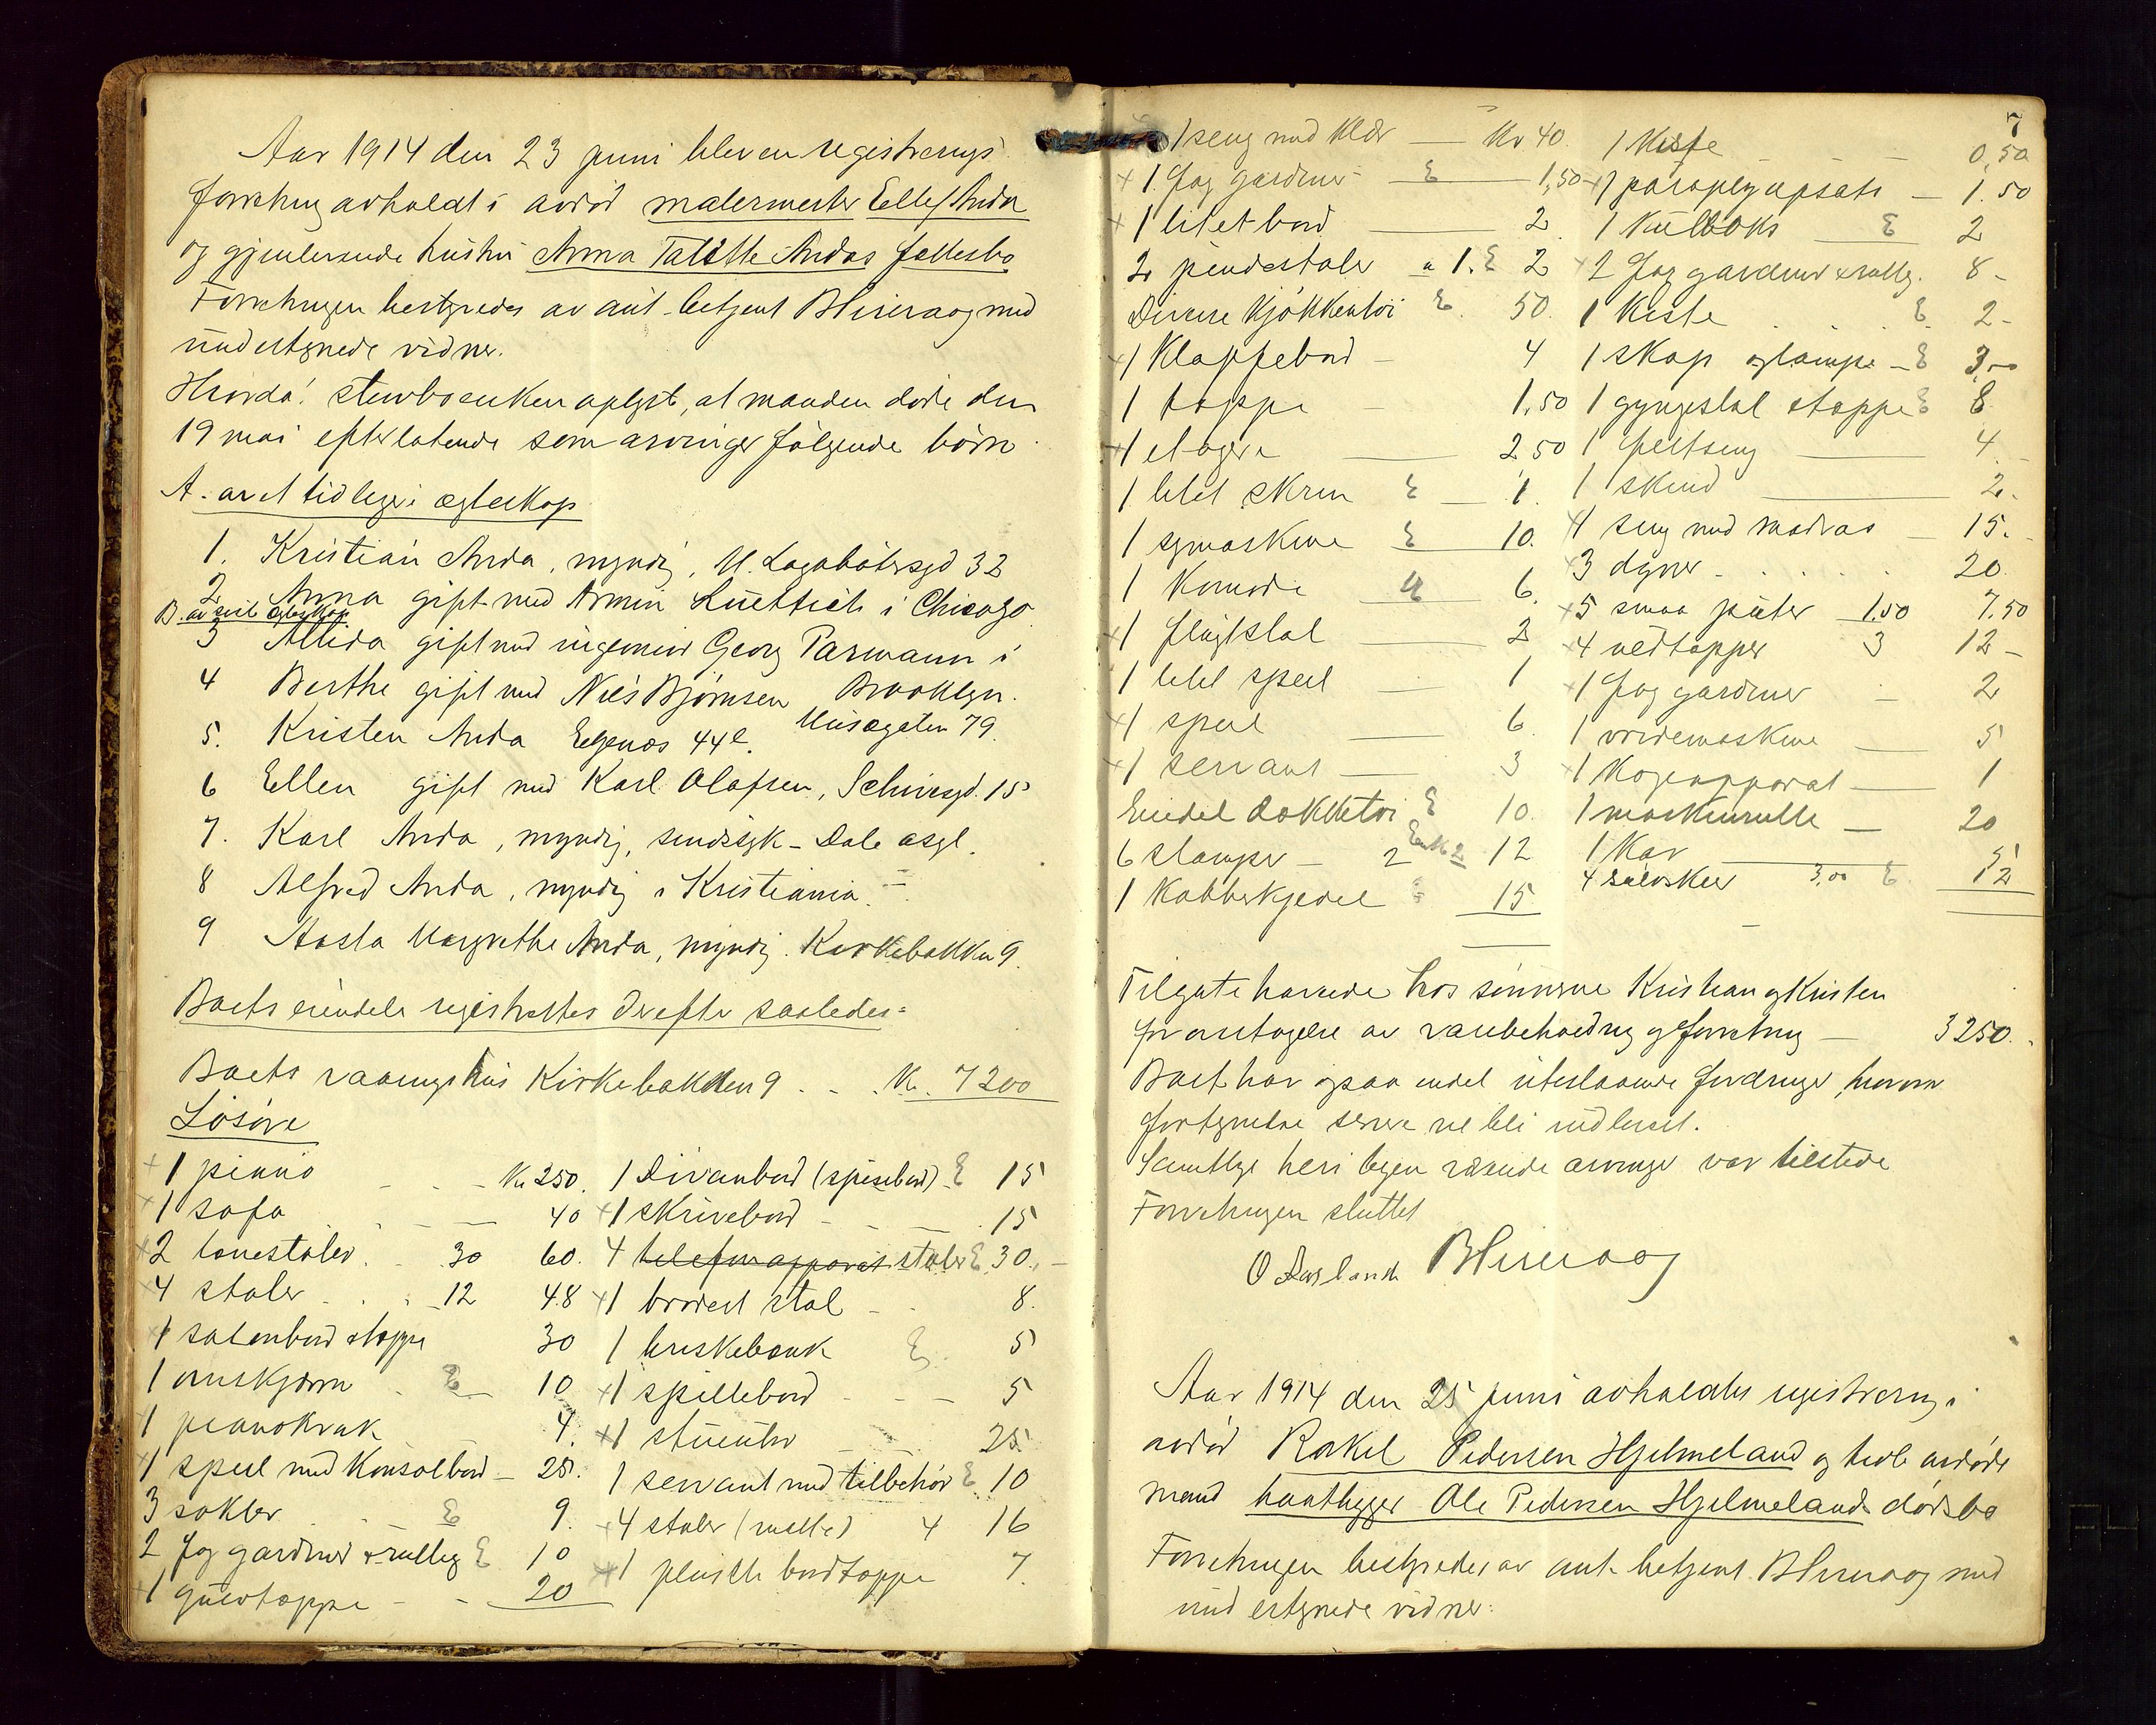 Aar 1914 den 23 juni blev en registrerings
forretning avholdt i avdød malermester Ellef Anda
og gjenlevende hustru Anna Talette Andas fællesbo
Forretningen bestyredes av aut. betjent BHinraag med
undertegnede vidner.
Hvorda! stervboenken oplyst, at manden døde den
19 mai efterlatende som arvinger følgende børn
A. av et tidligere ægteskap
1. Kristian Anda, myndig, M. Lagabøtersgd 32
2. Anna gift med Armin Luettich i Chicago
B. av siste ægteskap
3 Allida gift med ingeniør Georg Parmann i
Brooklyn.
4 Berthe gift med Nils Bjørnsen Musegaten 79.
5. Kristen Anda Egenæs 44 e.
6 Ellen gift med Karl Olafsen, Schivesgd. 15
7. Karl Anda, myndig, sindssyk - Dale asyl.
8 Alfred Anda, myndig i Kristiania
9 Aasta Margrethe Anda, myndig. Kirkebakken 9.
Boets eiendele registrertes derefter saaledes:
Boets vaaningshus Kirkebakken 9 . . . Kr. 7200
Løsøre
1 piano Kr 250.
1 sofa 40
2 lænestoler 30 60.
4 stoler 12 48
1 salonbord & teppe 30
1 ovnskjærm E 10
1 pianokrak 4.
1 speil med konsolbord 25.
3 sokler E 9.
2 fag gardiner & rulleg E 10
1 gulvteppe 20
1 Divanbord (spisebord) E 15
1 skrivebord 15
4 telefonapparat stoler E 30.-
1 brodert stol 8.
1 briskebænk E 5
1 spillebord 5
1 stueuhr 25
1 servant med tilbehør E 10
4 stoler (røtte) 4 16
1 plusch bordteppe 7.
7
1 seng med klær Kr 40.
1 fag gardiner E 1,50
1 litet bord 2
2 pindestoler a 1. E 2
Diverse kjøkkentøi E 50.
1 Klaffebord 4
1 teppe 1,50
1 etagere 2,50
1 litet skrin E 1.
1 symaskine E 10.
1 Komode 6.
1 fløitstol 2
1 litet speil 1
1 speil 6.
1 servant 3
Endel dækketøi E 10.
6 stamper 2 12
1 Kobberkjedel E 15
1 Kiste 0,50
1 paraplyopsats 1.50
1 Kulboks E 2
2 fag gardiner & rulleg. 8 -
1 Kiste E 2 -
1 skap og lampe E 3,-
1 gyngestol & teppe E 8
1 feltseng 4.
1 skind 2.
1 seng med madras 15.
3 dyner 20.
5 smaa puter 1.50 7.50
4 vedtepper 3 12 -
1 fag gardiner 2
1 vridemaskine 5
1 Kogeapparat 1
1 maskinrulle 20
1 Kar 5
4 sølvskeer 3,00 E 12
Tilgodehavende hos sønnerne Kristian og Kristen
for overtagelse av varebeholdning og forretning 3250.
Boet har ogsaa endel utestaaende fordringer, hvorom
fortegnelse senere vil bli indlevert.
Samtlige heri byen værende arvinger var tilstede
Forretningen sluttet
O Aasland BHinraag
Aar 1914 den 25 juni avholdtes registrering i
avdød Rakel Pedersen Hjelmeland og tidl. avdøde
mand baatbygger Ole Pedersen Hjelmelands dødsbo
Forretningen bestyredes av aut. betjent BHinraag med
undertegnede vidner: